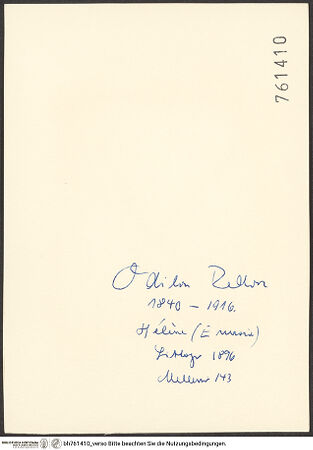 761410
Odilon Redon
1840 – 1916.
Hélène (Ennoia)
Lithogr 1896
Mellerio 143
bh761410_verso Bitte beachten Sie die Nutzungsbedingungen.